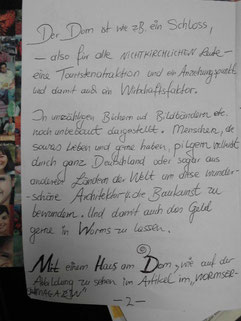 Der Dom ist wie z.B. ein Schloss,
- also für alle NICHTKIRCHLICHEN Leute -
eine Touristenattraktion und ein Anziehungspunkt
und damit auch ein Wirtschaftsfaktor.
In unzähligen Büchern und Bildbänden etc.
noch unbebaut dargestellt. Menschen, die
sowas lieben und gerne haben, pilgern vielleicht
durch ganz Deutschland oder sogar aus
anderen Ländern der Welt um diese wunder-
schöne Architektur & die Baukunst zu
bewundern. Und damit auch das Geld
gerne in Worms zu lassen.
Mit einem Haus am Dom, wie auf der
Abbildung zu sehen im Artikel im "WORMSER-
MAGAZIN"
- 2 -